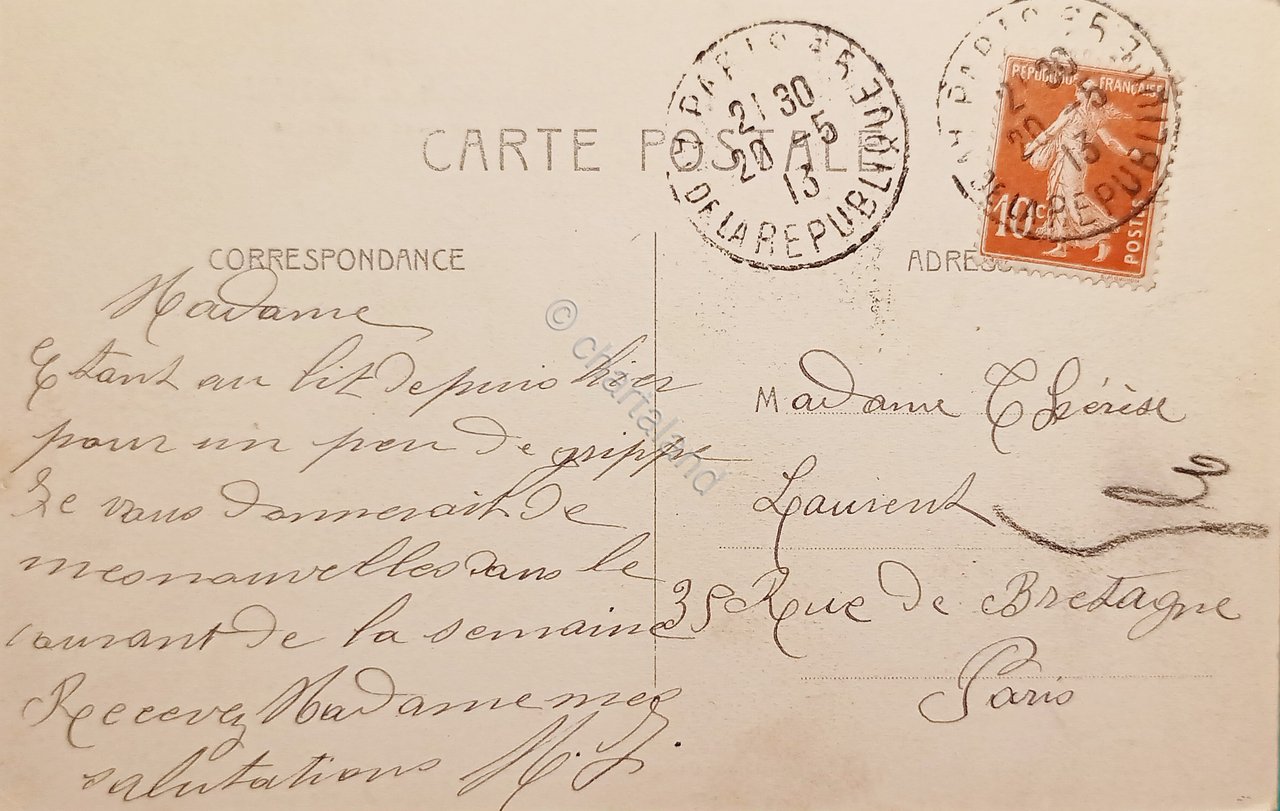 CARTE POSTALE
PARIS
21 30
20 -5
13
DE LA REPUBLIQUE
PARIS
21 30
20 -5
13
DE LA REPUBLIQUE
REPUBLIQUE FRANÇAISE
10 c
POSTES
CORRESPONDANCE
Madame
Etant au lit depuis hier
pour un peu de grippe
Je vous donnerait de
mes nouvelles dans le
courant de la semaine
Recevez Madame mes
salutations M. J.
ADRESSE
Madame Thérèse
Laurent
35 Rue de Bretagne
Paris
© chartaland